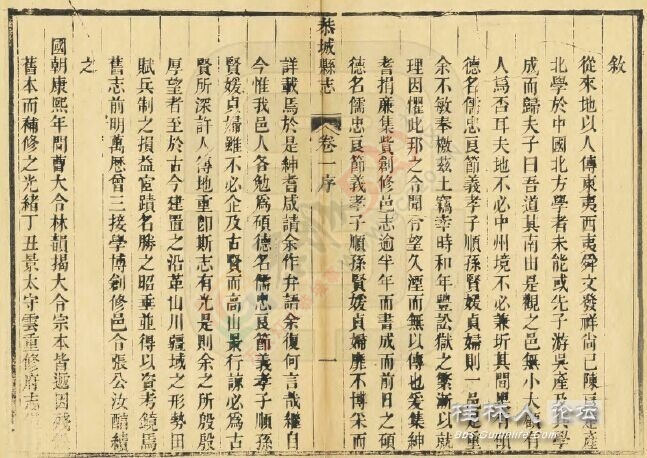 敘
從來地以人傳東夷西夷舜文發祥尚已陳良產
北學於中國北方學者未能或先子游吳產
學成而歸夫子曰吾道其南由是觀之邑無小大顧有
人焉否耳夫地不必中州境不必兼圻其間
德名儒忠良節義孝子順孫賢媛貞婦則一邑
余不敏奉檄茲土竊幸時和年豐訟獄之繁漸以就
理因懼此邦之令聞令望久湮而無以傳也爰集紳
耆捐廉集貲創修邑志逾半年而書成而前日之碩
德名儒忠良節義孝子順孫賢媛貞婦靡不博采而
恭城縣志
卷一序
一
詳載焉於是紳耆咸請余作弁語余復何言哉繼自
今惟我邑人各勉為碩德名儒忠良節義孝子順孫
賢媛貞婦雖不必企及古賢而高山景行課必為古
賢所深許人傳地重卽斯志有光是則余之所殷殷
厚望者至於古今建置之沿革山川疆域之形勢田
賦兵制之損益宦蹟名勝之昭垂並得以資考鏡焉
舊志前明萬歷曾三接學博創修邑令張公汝
續之
國朝康熙年間曹大令林韻揭大令宗本皆遞因
舊本而補修之光緒丁丑景太守雲重修府志
桂林人 论坛